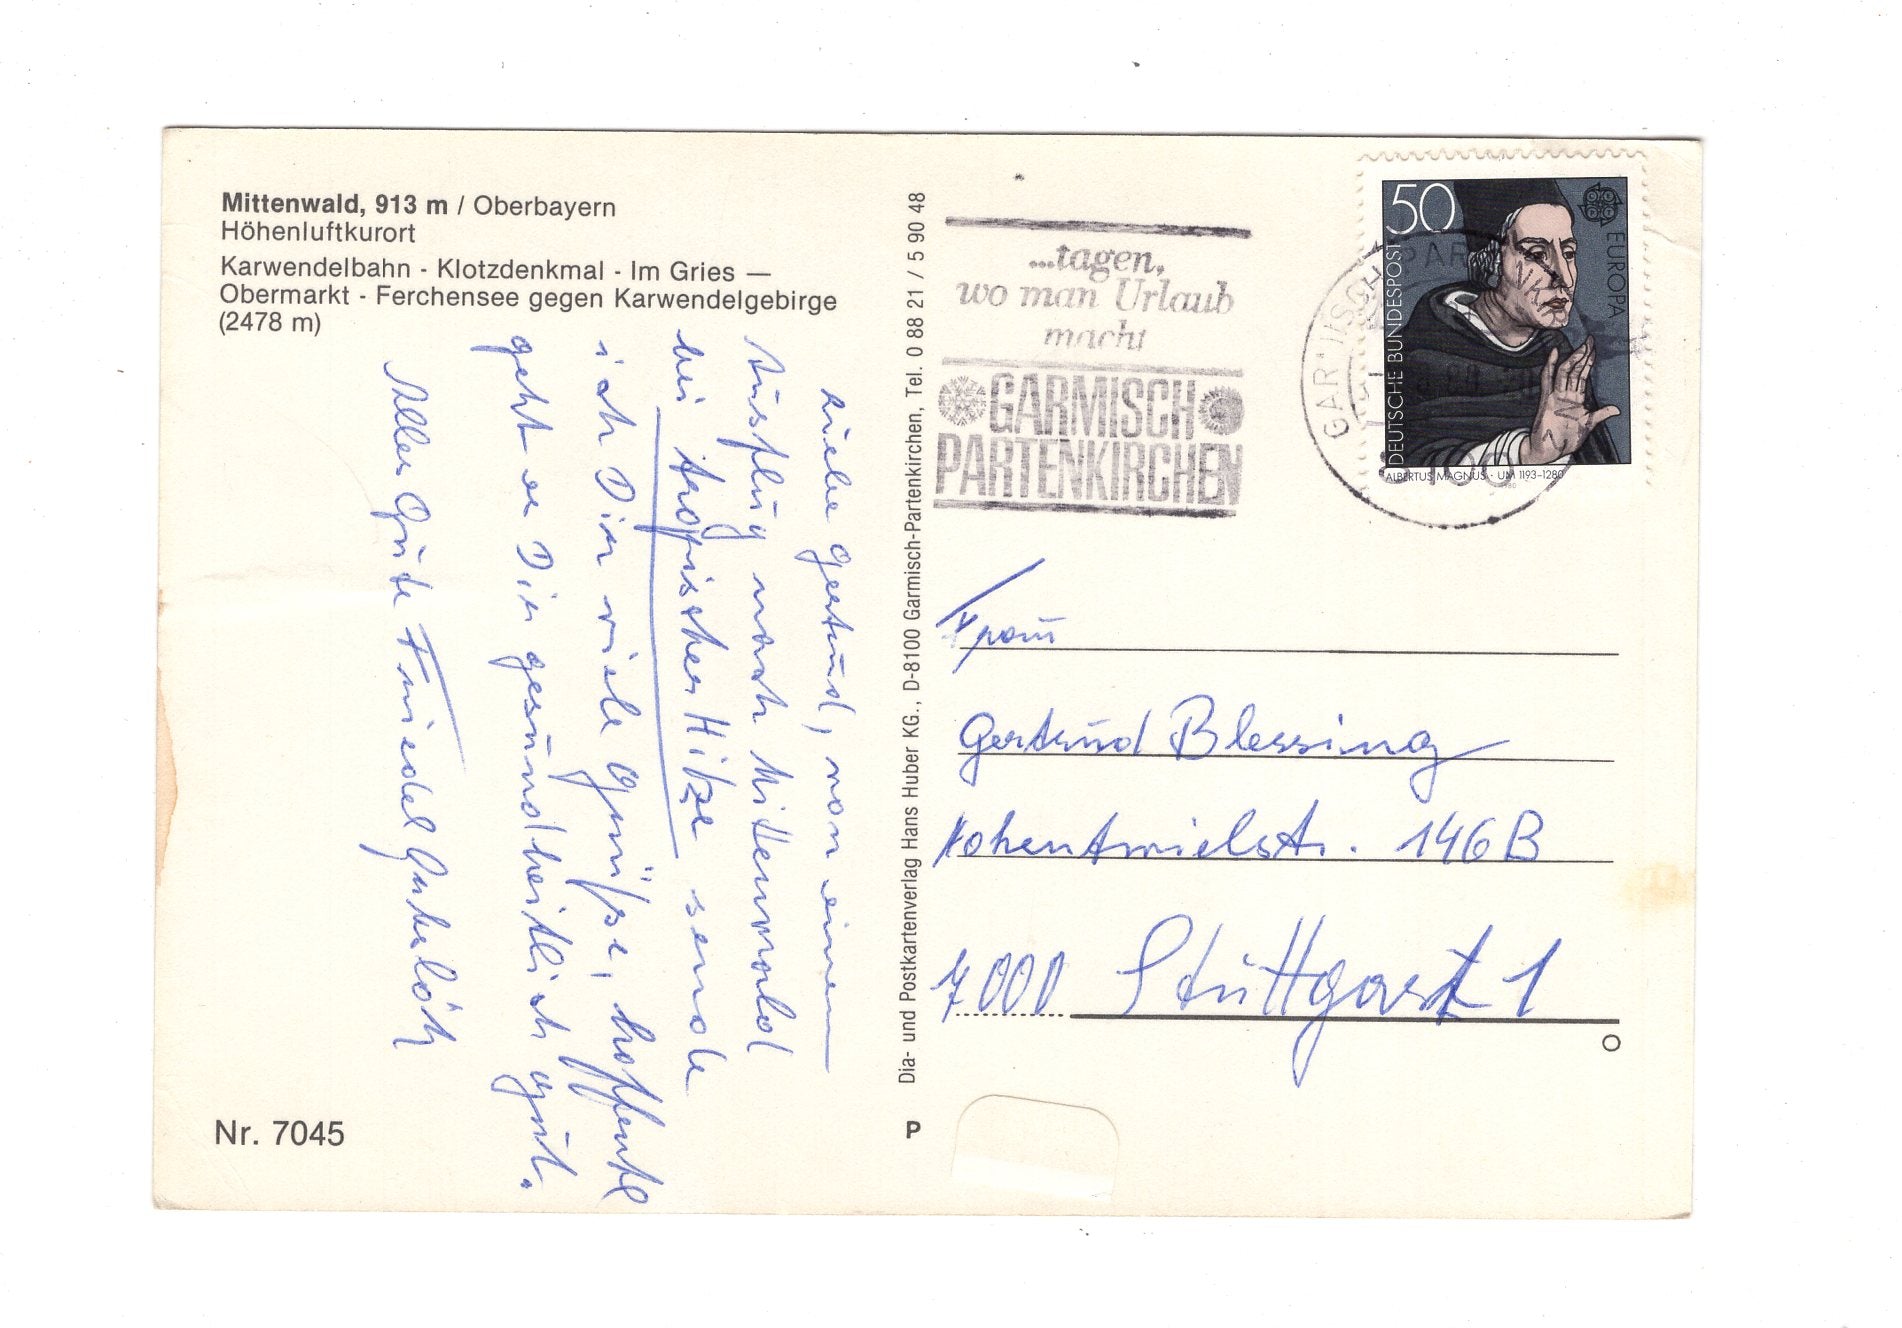 Mittenwald, 913 m / Oberbayern
Höhenluftkurort
Karwendelbahn - Klotzdenkmal - Im Gries —
Obermarkt - Ferchensee gegen Karwendelgebirge
(2478 m)
Liebe Gertrud, von einem
Ausflug nach Mittenwald
bei tropischer Hitze sende
ich Dir viele Grüße, hoffentl
geht es Dir gesundheitlich gut.
Alles Gute Friedel
Nr. 7045
Dia- und Postkartenverlag Hans Huber KG., D-8100 Garmisch-Partenkirchen, Tel. 0 88 21 / 5 90 48
P
...tagen,
wo man Urlaub
macht
GARMISCH
PARTENKIRCHEN
50
DEUTSCHE BUNDESPOST
EUROPA
ALBERTUS MAGNUS · UM 1193-1280
GARMISCH-PARTENKIRCHEN
8100
Frau
Gertrud Blessing
Hohentwielstr. 146B
7000 Stuttgart 1